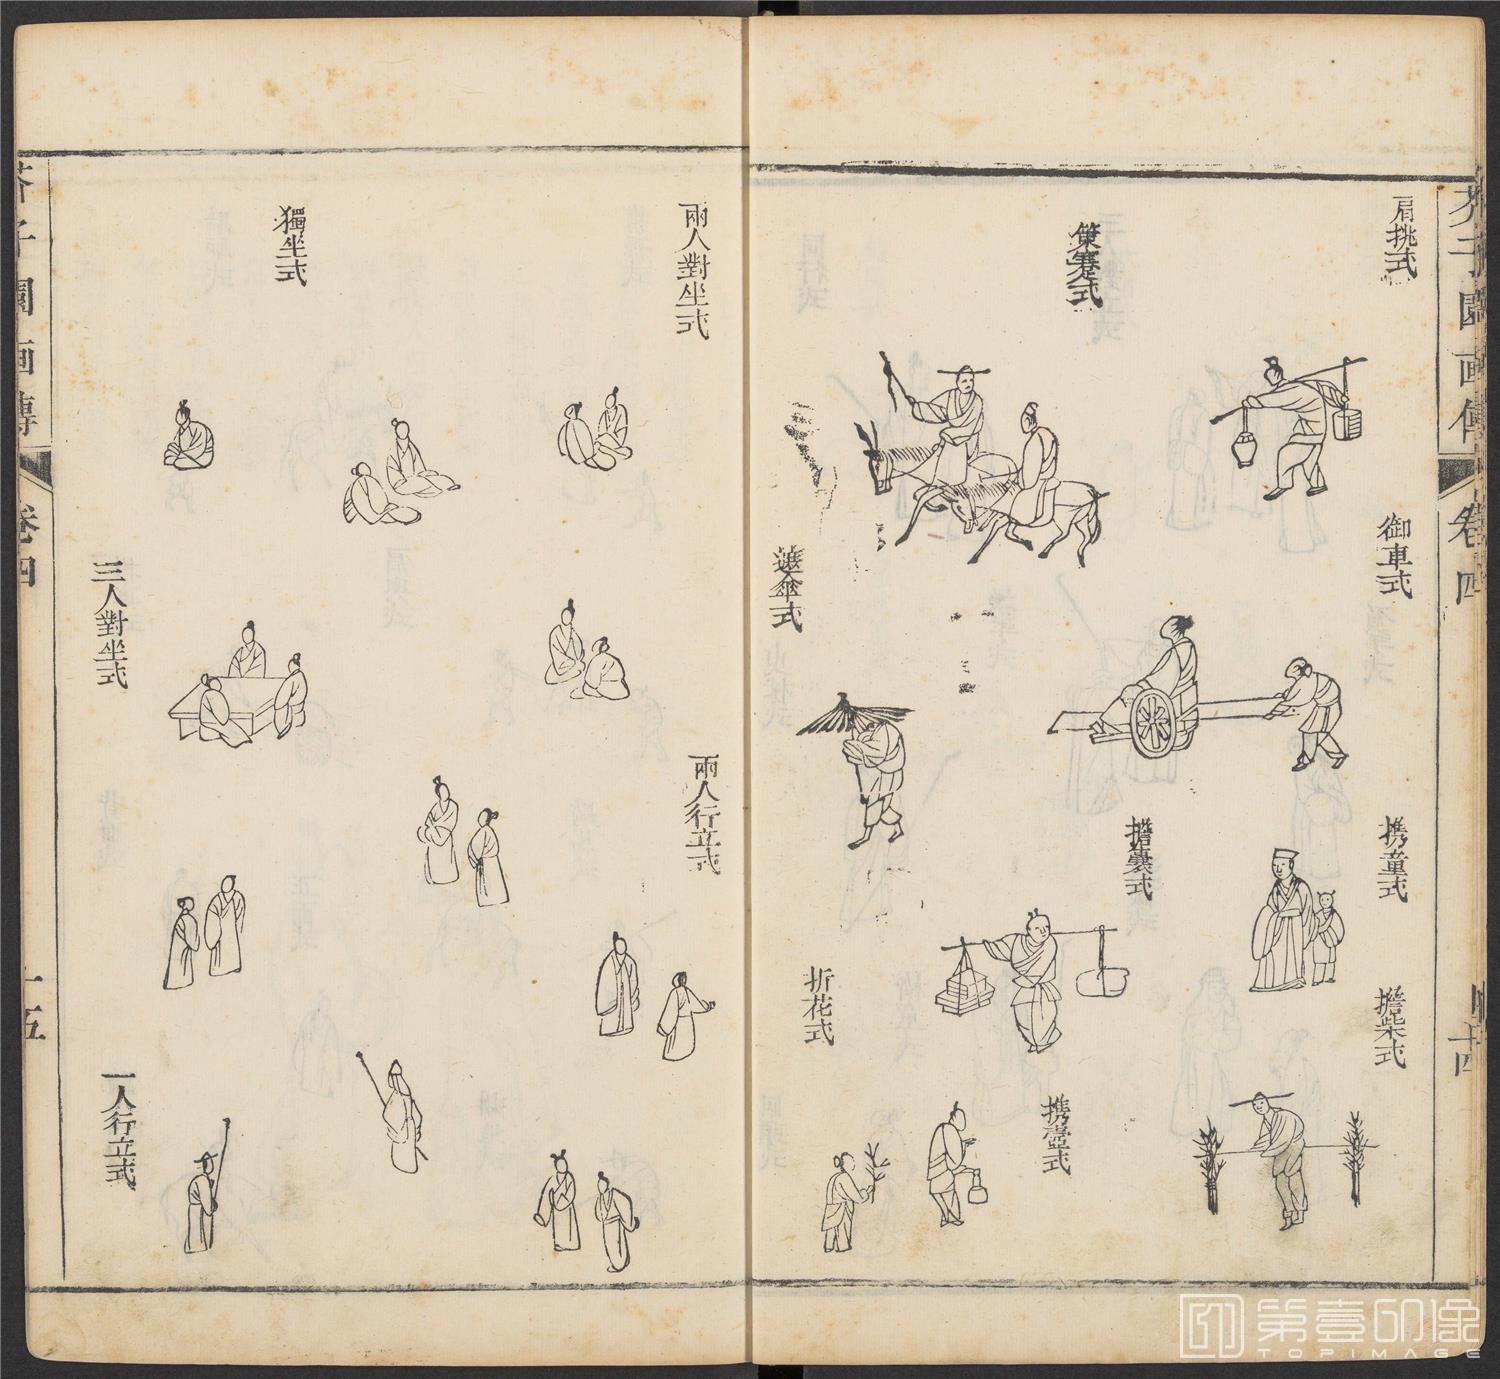 芥子園画傳
卷四
十四
肩挑式
御車式
携童式
擔柴式
策蹇式
擔囊式
携壺式
遮傘式
折花式
兩人對坐式
兩人行立式
獨坐式
三人對坐式
一人行立式
芥子園画傳
卷四
十五
第壹印像
TOPIMAGE